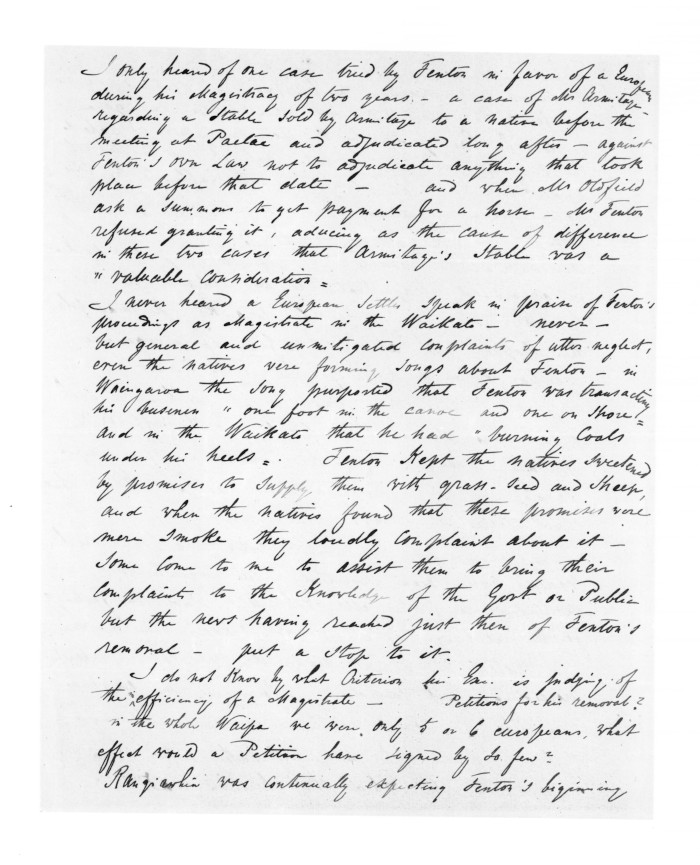 I only heard of one case tried by Fenton in favor of a European
during his Magistracy of two years. – a case of Mr Armitage
regarding a Stable Sold by Armitage to a native before the
meeting at Paetae and adjudicated long after – against
Fenton's own Law not to adjudicate anything that took
place before that date – and when Mr Oldfield
ask a Summons to get payment for a horse – Mr Fenton
refused granting it, aducing as the cause of difference
in these two cases that Armitage's Stable was a
"valuable Consideration =
I never heared a European Settler Speak in praise of Fenton's
proceedings as Magistrate in the Waikato – never –
but general and unmitigated Complaints of utter neglect,
even the natives were forming Songs about Fenton – in
Waingaroa the Song purposted that Fenton was transacting
his business "one foot in the canoe and one on Shore" =
and in the Waikato that he had "burning Coals
under his heels = . Fenton Kept the natives Sweetened
by promises to Supply them with grass-Seed and Sheep,
and when the natives found that these promises were
mere Smoke they loudly Complaint about it –
Some Come to me to assist them to bring their
Complaints to the Knowledge of the Govt or Public
but the news having reached just then of Fenton's
removal – put a Stop to it.
I do not Know by what Criterion is judging of
the efficiency of a Magistrate – Petitions for his removal?
in the whole Waipa we were only 5 or 6 europeans, what
effect would a Petition have Signed by So few?
Rangiawhia was continually expecting Fenton's biginning